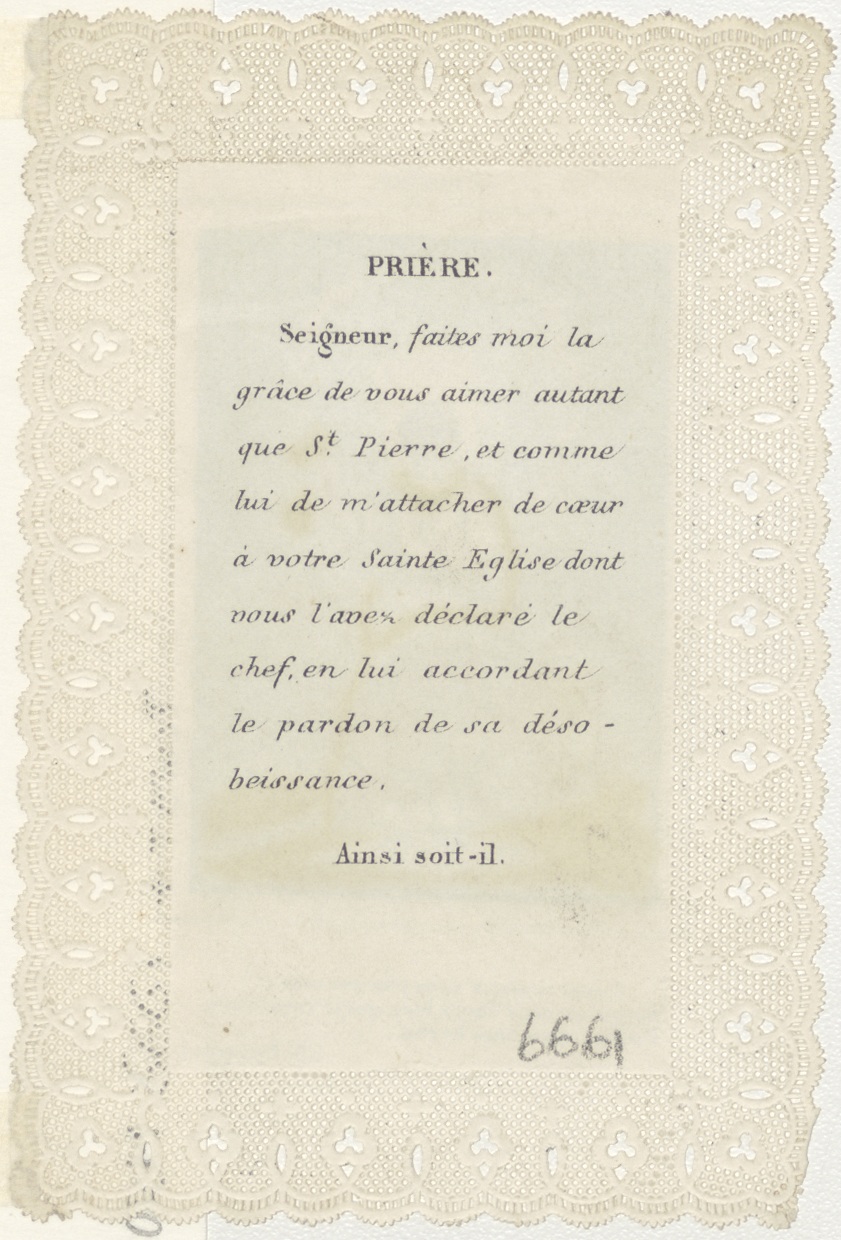 PRIÈRE.
Seigneur, faites moi la
grâce de vous aimer autant
que St. Pierre, et comme
lui de m'attacher de cœur
à votre Sainte Eglise dont
vous l'avez déclaré le
chef, en lui accordant
le pardon de sa déso-
beissance.
Ainsi soit-il.
6661